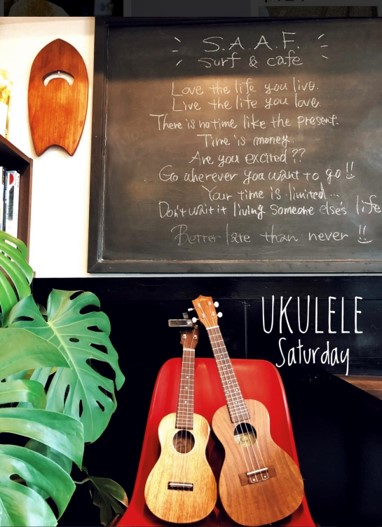 S.A.A.F.
Surf & cafe
Love the life you live.
Live the life you love
There is no time like the present.
Time is money.
Are you excited ??
Go wherever you want to go !!
Your time is limited...
Don't wait it living someone else's life
Better late than never !!
UKULELE
Saturday